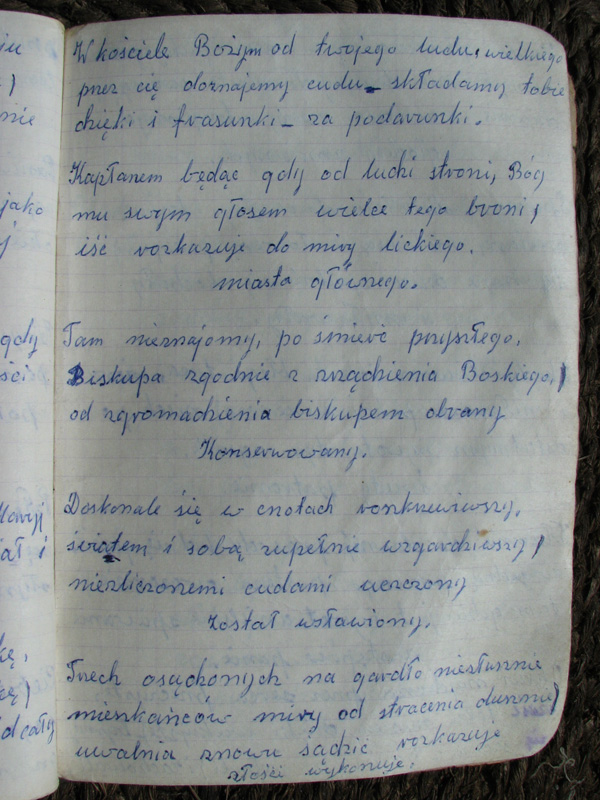 iu
)
nie
jako
j
gdy
ści
Maryi
iał i
kę,
kę)
id cały
W kościele Bożym od twojego ludu, wielkiego
przez cię doznajemy cudu_ składamy tobie
dzięki i frasunki_ za podarunki.
Kapłanem będąc gdy od ludzi stroni, Bóg
mu swym głosem wielce tego broni,
iść rozkazuje do miry lickiego.
miasta głównego.
Tam nieznajomy, po śmierć przyszłego,
Biskupa zgodnie z zrządzienia Boskiego,
od zgromadzienia biskupem obrany
Konserwowany.
Doskonale się w cnotach ronkrzewiwszy,
światem i sobą zupełnie wzgardziwszy,
niezliczonemi cudami uczczony
został wsławiony.
Trzech osądzonych na gardło niesłusznie
mieszkańców miry od stracenia dusznie,
uwalnia znowu sądzić rozkazuje
złości wykonuje.